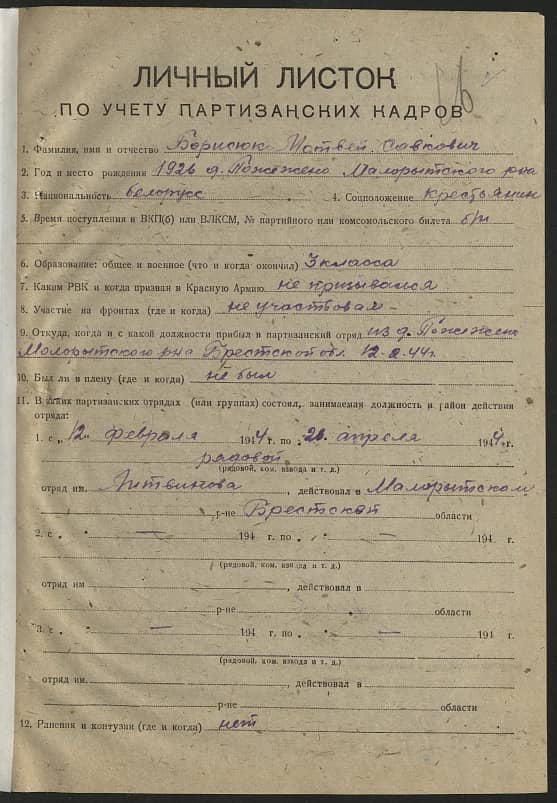 ЛИЧНЫЙ ЛИСТОК
ПО УЧЕТУ ПАРТИЗАНСКИХ КАДРОВ
1. Фамилия, имя и отчество Борисюк Матвей Савкович
2. Год и место рождения 1926 д. Пожежено Малорытского р-на
3. Национальность белорус 4. Соцположение крестьянин
5. Время поступления в ВКП(б) или ВЛКСМ, № партийного или комсомольского билета б/п
6. Образование: общее и военное (что и когда окончил) 3 класса
7. Каким РВК и когда призван в Красную Армию не призывался
8. Участие на фронтах (где и когда) не участвовал
9. Откуда, когда и с какой должности прибыл в партизанский отряд из д. Пожежено
Малорытского р-на Брестской обл. 12.2.44г.
10. Был ли в плену (где и когда) не был
11. В каких партизанских отрядах (или группах) состоял, занимаемая должность и район действия
отряда:
1. с „12" февраля 1944 г. по „26" апреля 1944 г.
рядовой
(рядовой, ком. взвода и т. д.)
отряд им. Литвинова, действовал в Малорытском
р-не Брестской области
2. с " — 194 г. по " — 194 г.
(рядовой, ком. взвода и т. д.)
отряд им , действовал в
р-не области
3. с " — 194 г. по " — 194 г.
(рядовой, ком. взвода и т. д.)
отряд им. , действовал в
р-не области
12. Ранения и контузии (где и когда) нет